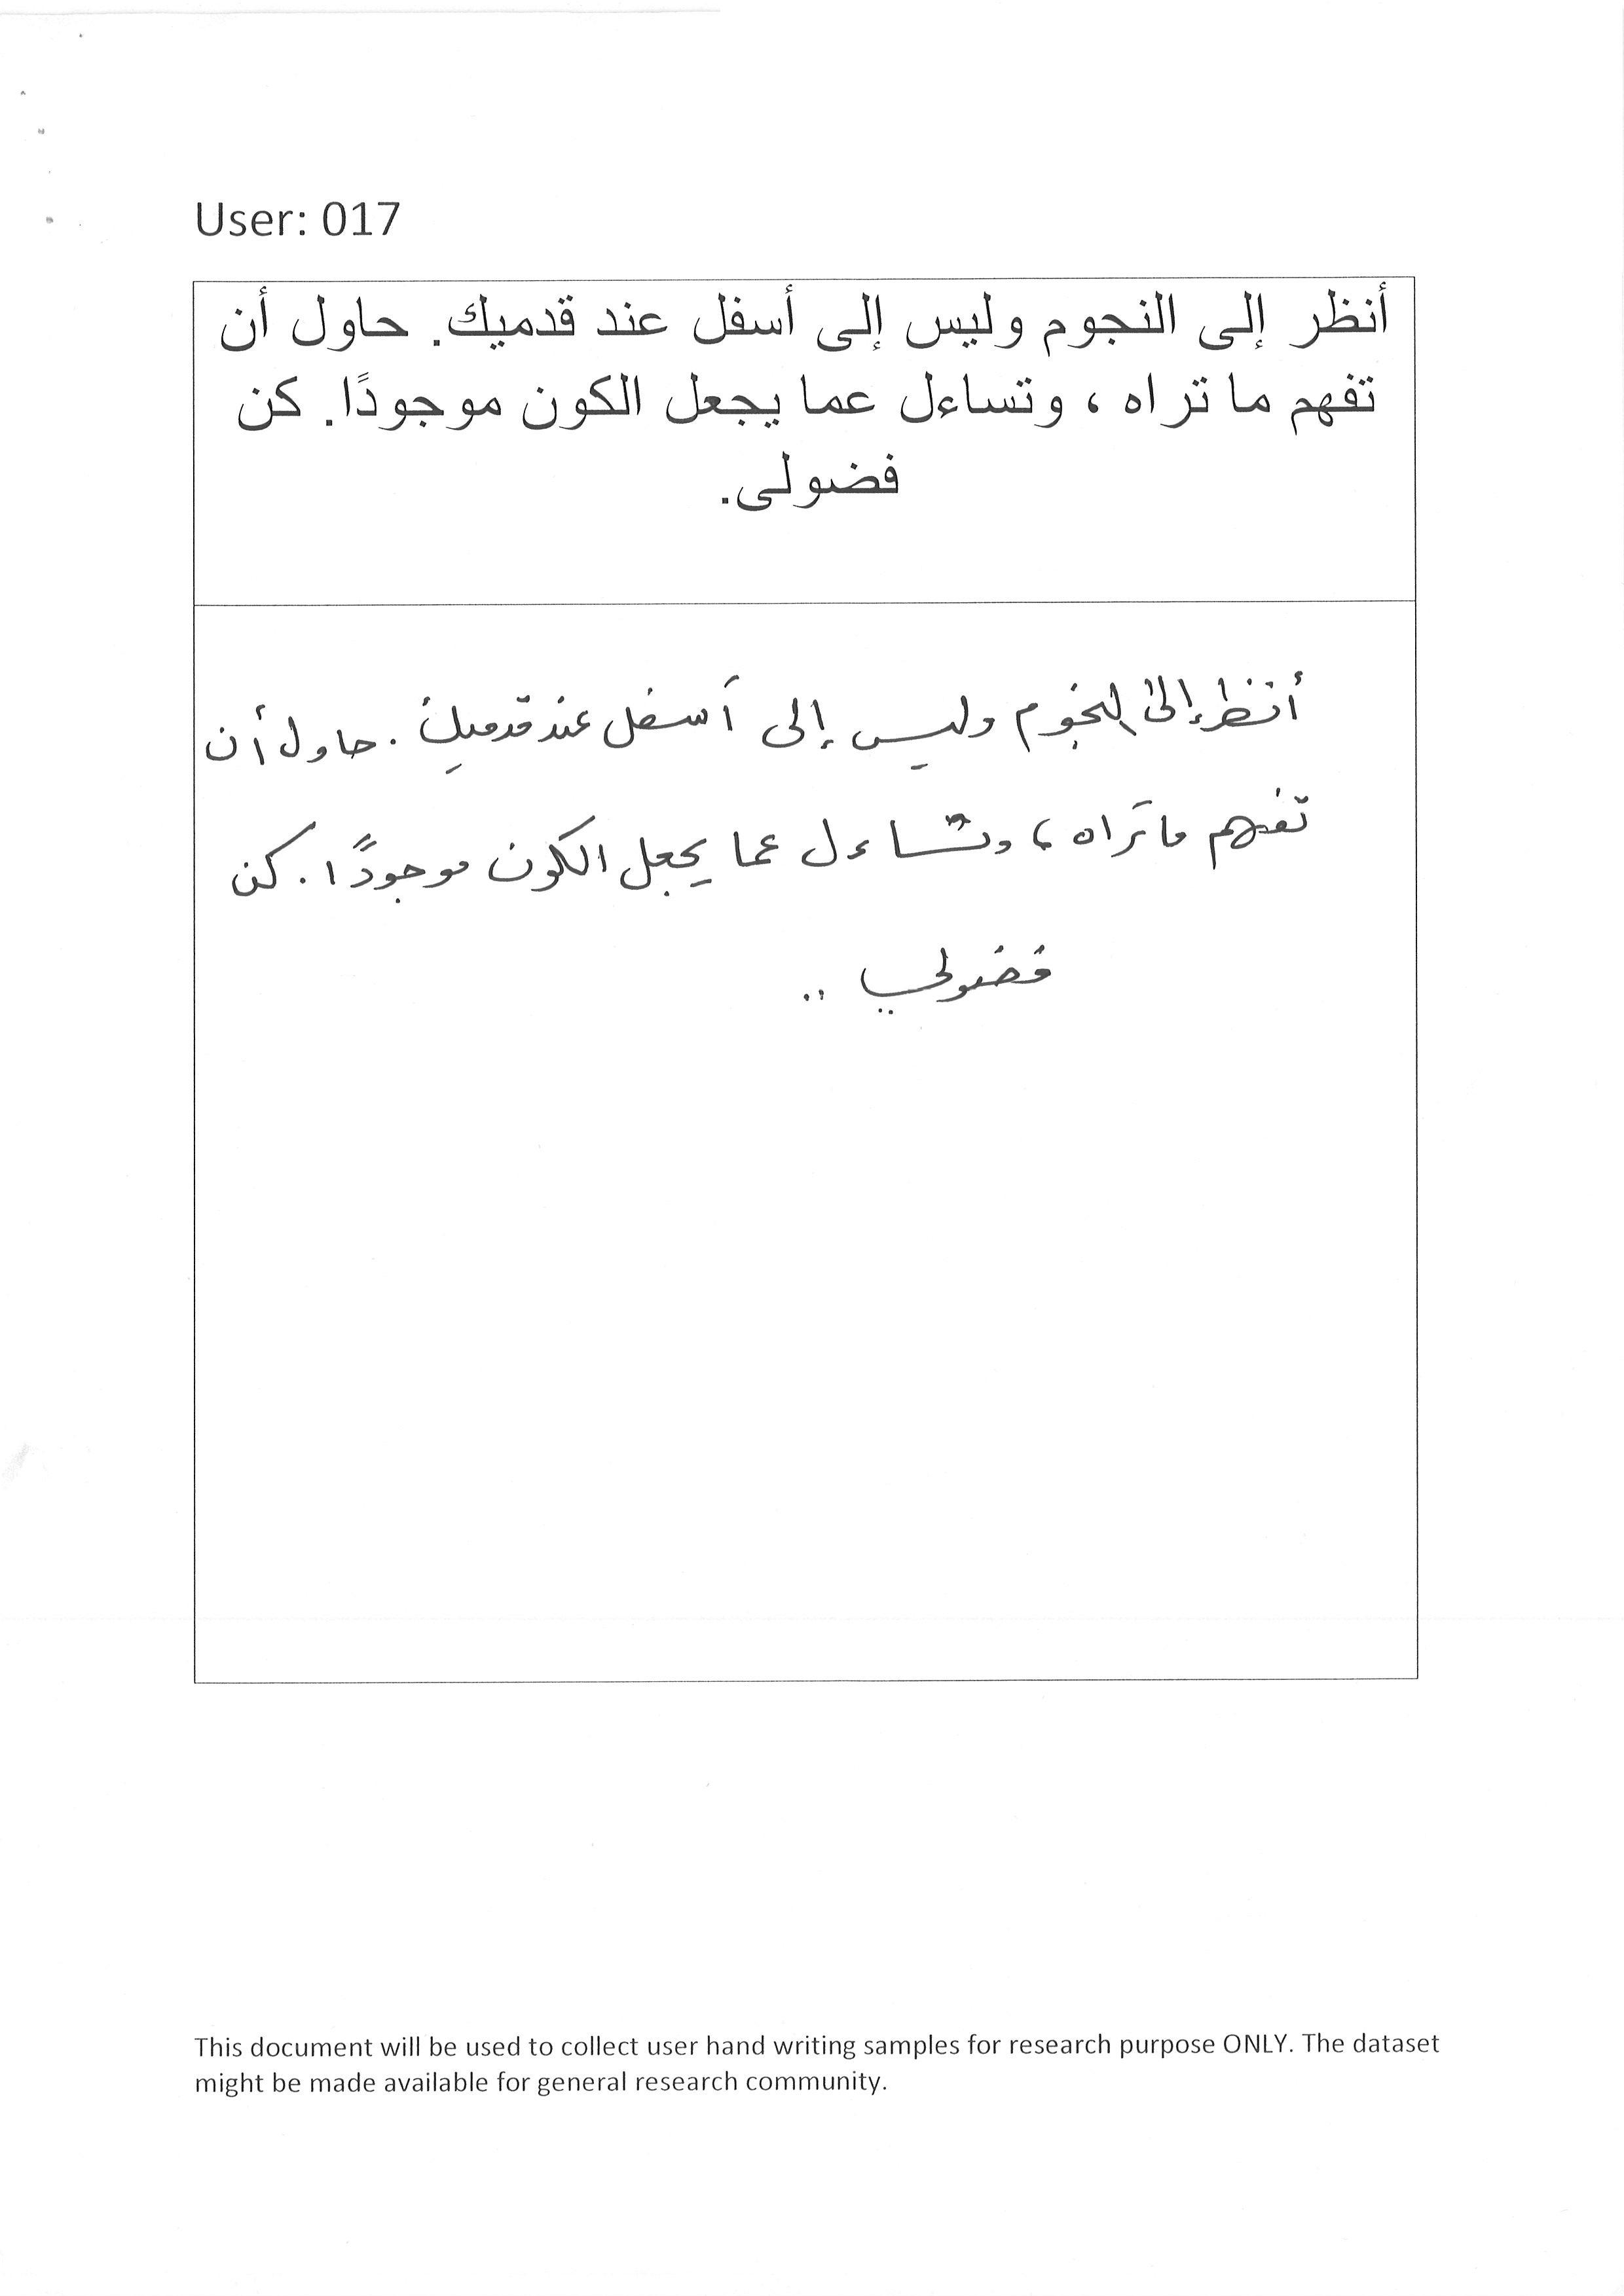 User: 017
أنظر إلى النجوم وليس إلى أسفل عند قدميك. حاول أن
تفهم ما تراه ، وتساءل عما يجعل الكون موجودًا. كن
فضولى.
أنظر إلى النجوم وليس إلى أسفل عند قدميك . حاول أن
تفهم ما تراه ، وتساءل عما يجعل الكون موجودًا . كن
فضولي ..
This document will be used to collect user hand writing samples for research purpose ONLY. The dataset
might be made available for general research community.